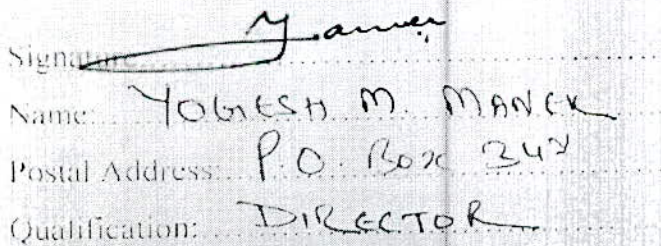 Signature
Name: YOGESH M. MANEK
Postal Address: P.O. Box 347
Qualification: DIRECTOR